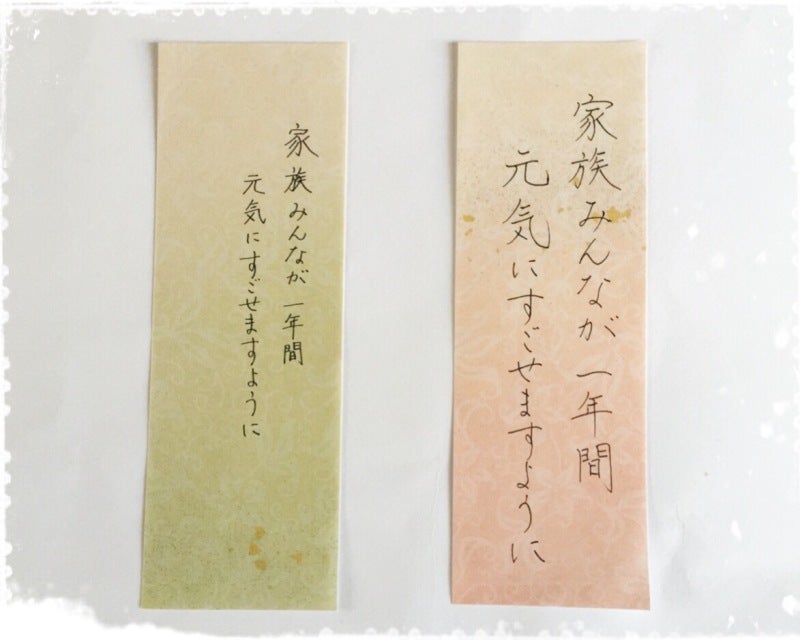 家族みんなが一年間
元気にすごせますように
家族みんなが一年間
元気にすごせますように